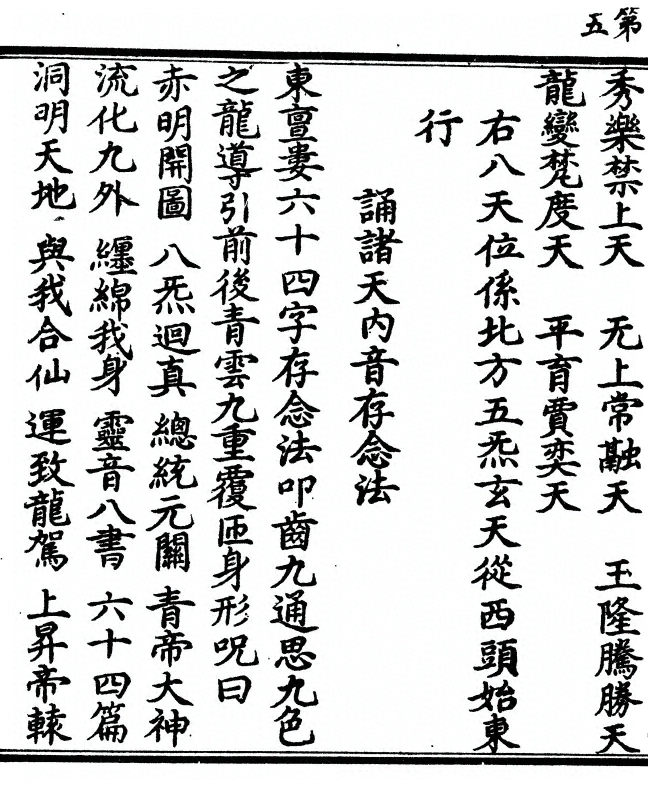 第五
秀樂禁上天　无上常融天　玉隆騰勝天
龍變梵度天　平育賈奕天
右八天位係北方五炁玄天從西頭始東
行
誦諸天内音存念法
東亶婁六十四字存念法叩齒九通思九色
之龍導引前後青雲九重覆匝身形呪曰
赤明開圖　八炁迴真　總統元關　青帝大神
流化九外　纏綿我身　靈音八書　六十四篇
洞明天地　與我合仙　運致龍駕　上昇帝轅